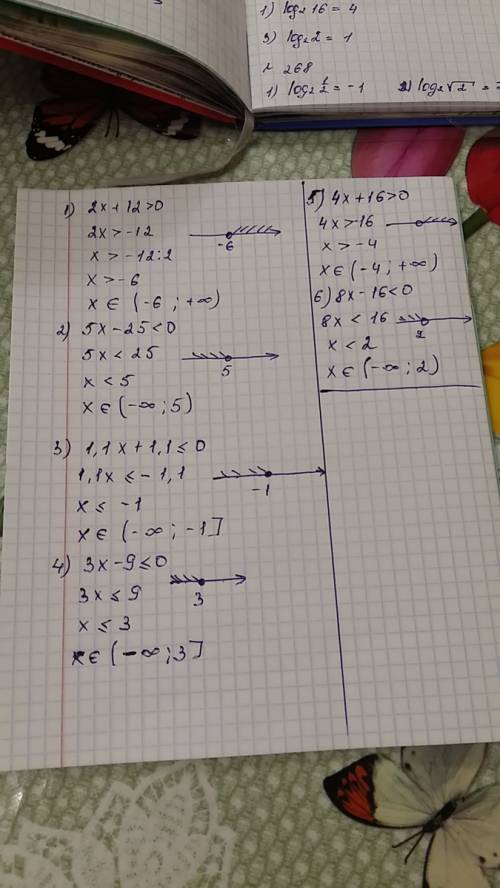 1) log₂ 16 = 4
3) log₂ 2 = 1
268
1) log₂ 1/2 = -1 2) log₂ √2 =
1) 2x + 12 > 0
2x > -12
-6
x > -12:2
x > -6
x ∈ (-6 ; +∞)
2) 5x - 25 < 0
5x < 25
5
x < 5
x ∈ (-∞ ; 5)
3) 1,1x + 1,1 ≤ 0
1,1x ≤ -1,1
-1
x ≤ -1
x ∈ (-∞ ; -1]
4) 3x - 9 ≤ 0
3x ≤ 9
3
x ≤ 3
x ∈ (-∞ ; 3]
5) 4x + 16 > 0
4x > -16
x > -4
x ∈ (-4 ; +∞)
6) 8x - 16 < 0
8x < 16
2
x < 2
x ∈ (-∞ ; 2)